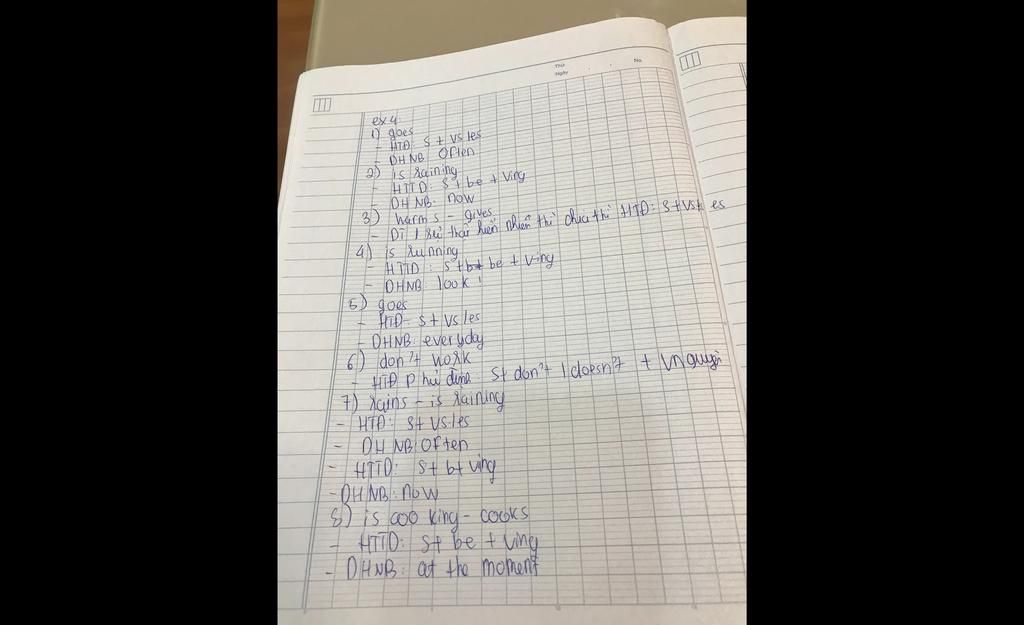 Thứ
Ngày
No.
ex 4
1) goes
- HTĐ: S + Vs les
- DHNB Often
2) is raining
- HTTD: S + be + Ving
- DHNB: now
3) harms - gives
- Dĩ 1 sự thật hiển nhiên thì chia thì HTĐ: S + Vs+ es
4) is running
- HTTD: S + be + V-ing
- DHNB: look!
5) goes
- HTĐ: S + Vs les
- DHNB: everyday
6) don't work
- HTĐ Phủ định: S+ don't I doesn't + Vnguyên
7) rains - is raining
- HTĐ: S+ Vs.les
- DHNB: Often
- HTTD: S + b+ ving
- DHNB: now
8) is cooking - cooks
- HTTD: S+ be + Ving
- DHNB: at the moment